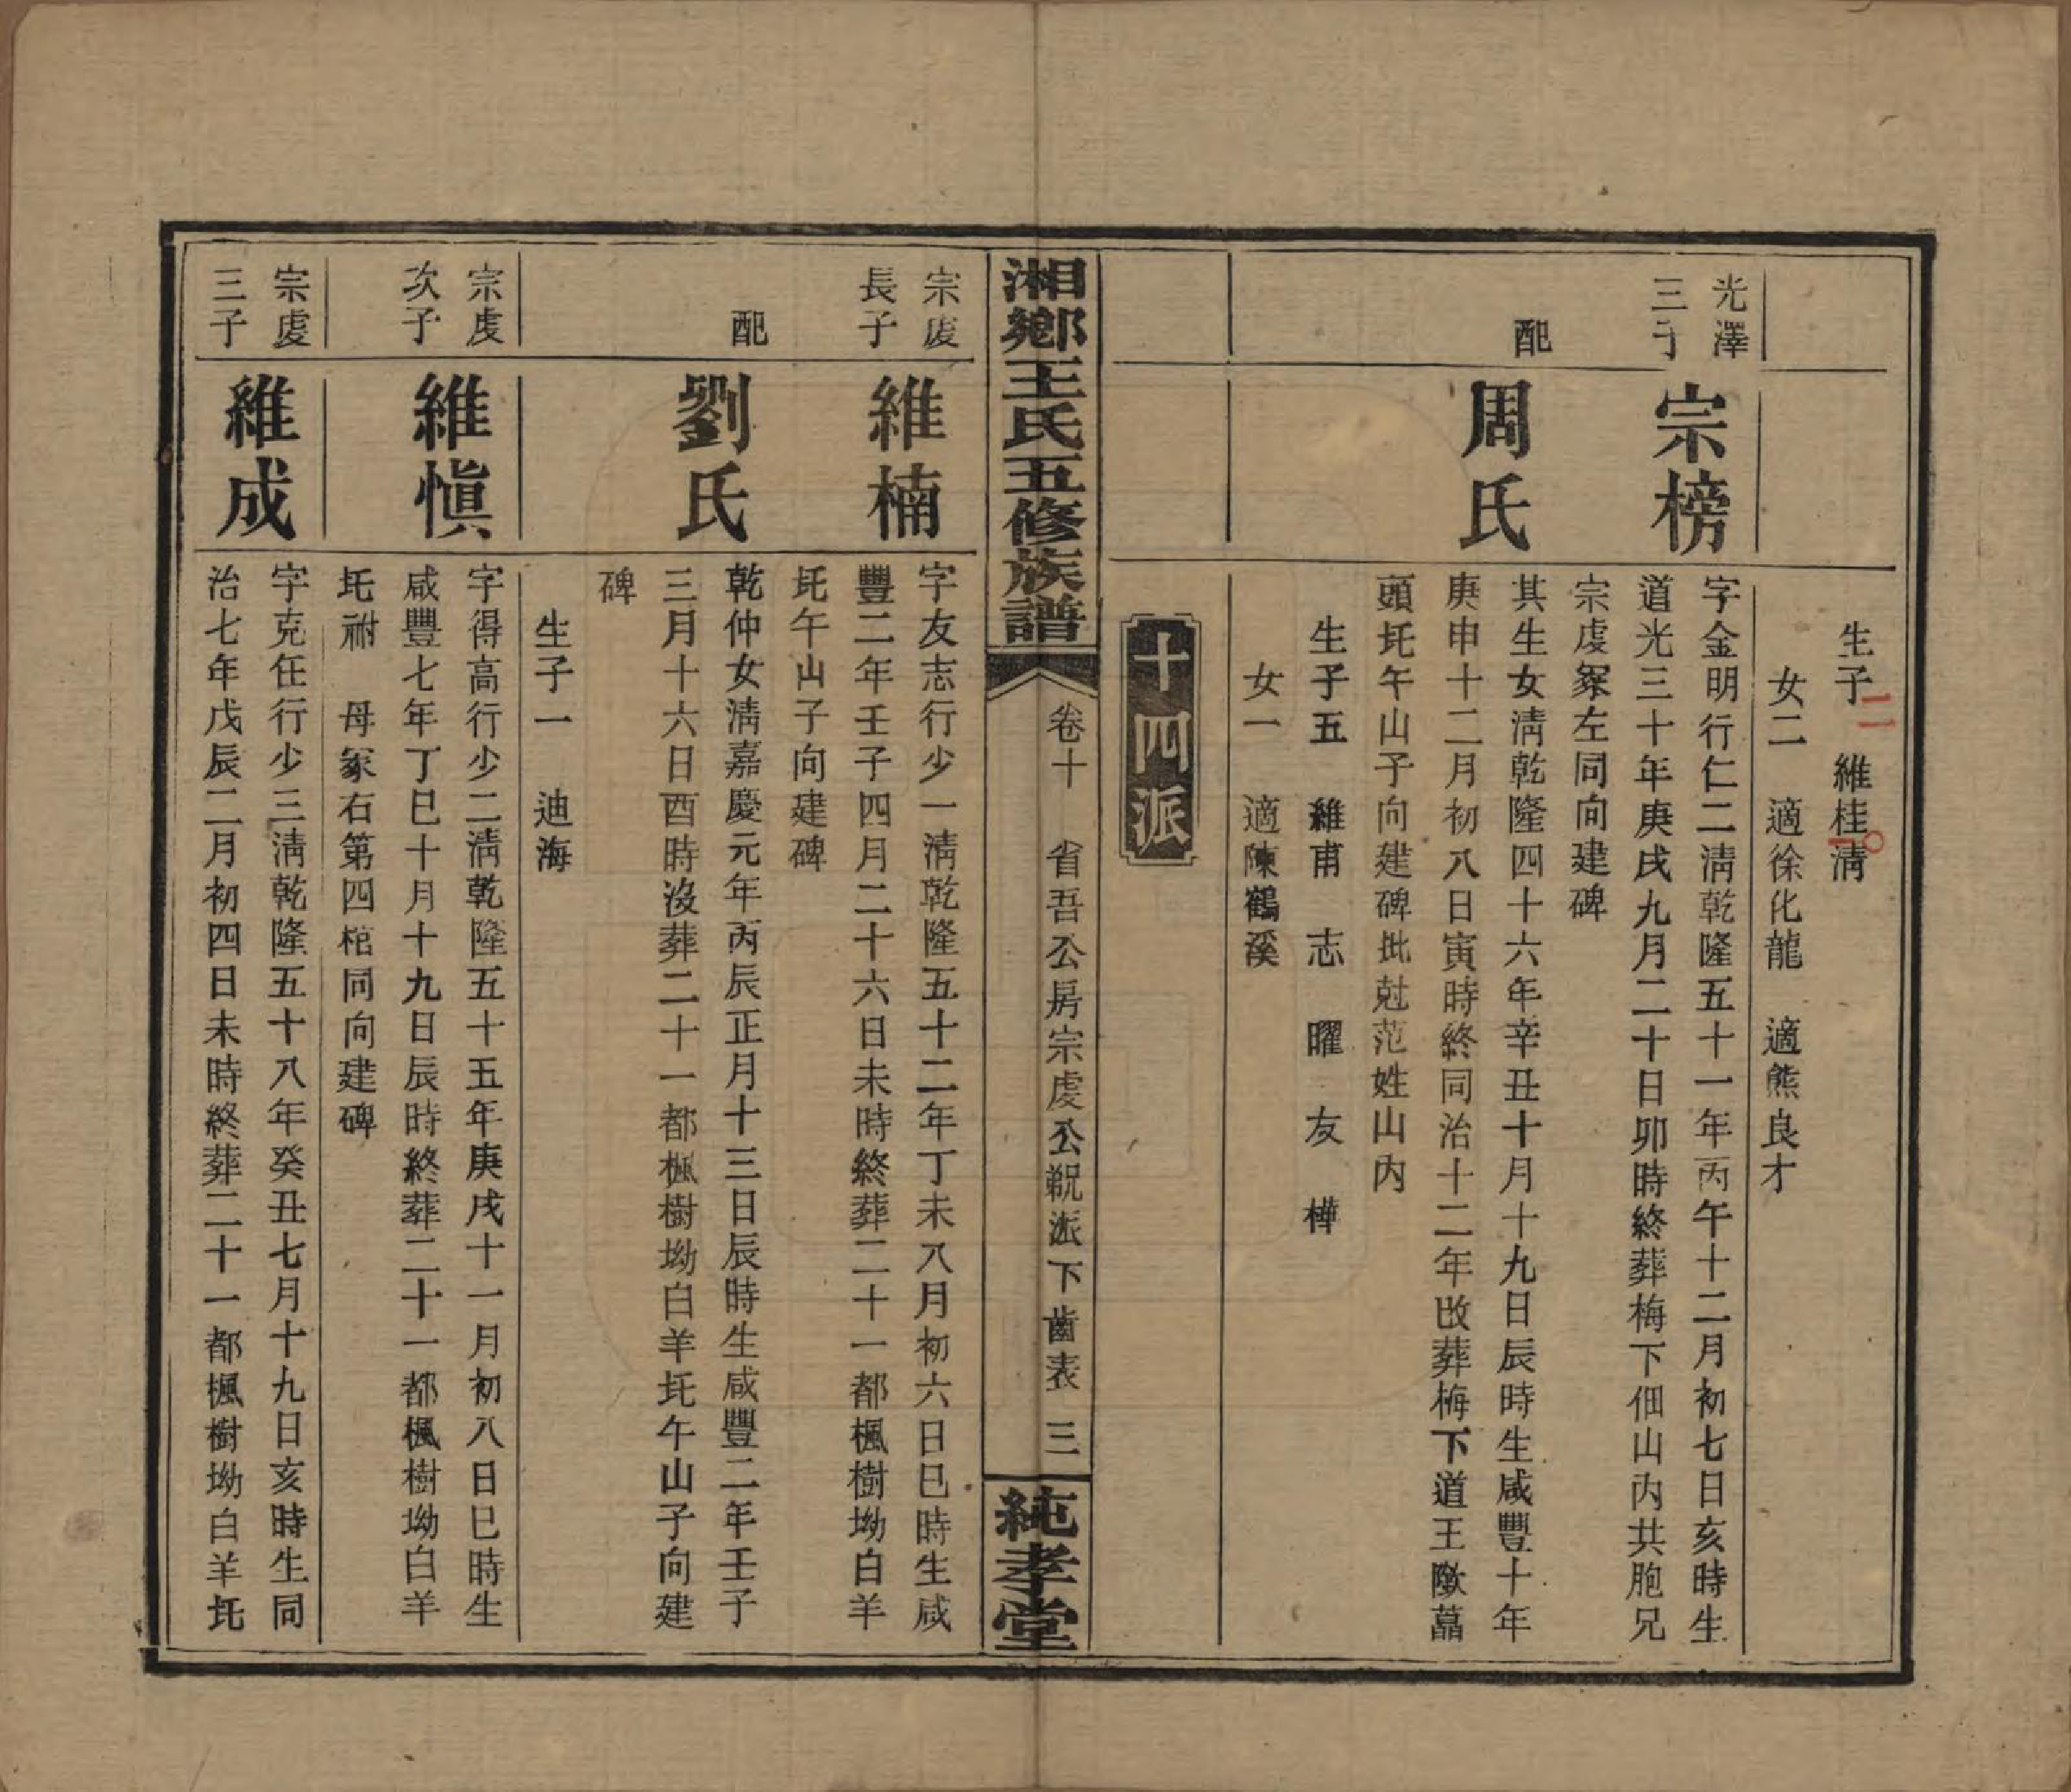 生子二 維桂 淸
女二 適徐化龍 適熊良才
光澤
三子
宗榜
字金明行仁二淸乾隆五十一年丙午十二月初七日亥時生
道光三十年庚戌九月二十日卯時終葬梅下佃山內共胞兄
宗虔冢左同向建碑
配
周氏
其生女淸乾隆四十六年辛丑十月十九日辰時生咸豐十年
庚申十二月初八日寅時終同治十二年改葬梅下道王墩藠
頭圫午山子向建碑批尅范姓山內
生子五 維甫 志 曜 友 樺
女一 適陳鶴溪
十四派
湘鄉王氏五修族譜
卷十 省吾公房宗虔公覜派下齒表 三
純孝堂
宗虔
長子
維楠
字友志行少一淸乾隆五十二年丁未八月初六日巳時生咸
豐二年壬子四月二十六日未時終葬二十一都楓樹坳白羊
圫午山子向建碑
配
劉氏
乾仲女淸嘉慶元年丙辰正月十三日辰時生咸豐二年壬子
三月十六日酉時沒葬二十一都楓樹坳白羊圫午山子向建
碑
生子一 迪海
宗虔
次子
維愼
字得高行少二淸乾隆五十五年庚戌十一月初八日巳時生
咸豐七年丁巳十月十九日辰時終葬二十一都楓樹坳白羊
圫祔 母冢右第四棺同向建碑
宗虔
三子
維成
字克任行少三淸乾隆五十八年癸丑七月十九日亥時生同
治七年戊辰二月初四日未時終葬二十一都楓樹坳白羊圫